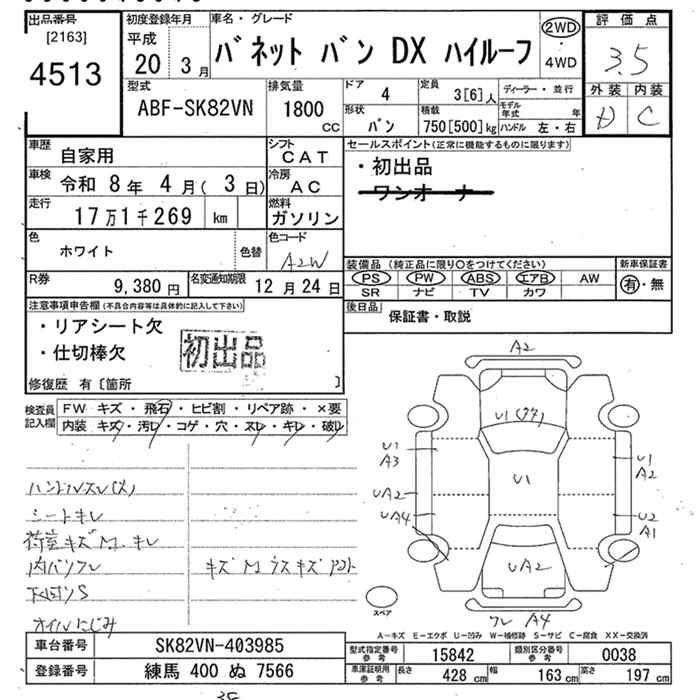 出品番号 初度登録年月 車名・グレード 評価点
[2163]
4513
平成
20 3月
バネット バン DX ハイルーフ
2WD
・
4WD
3.5
外装 内装
D C
型式 排気量 ドア 定員 ディーラー・並行
ABF-SK82VN 1800 CC 4 3[6]人
モデル年式 年
形状 積載 ハンドル 左・右
バン 750[500]kg
車歴 自家用
シフト CAT
セールスポイント(正常に機能するものに限ります)
・初出品
ワンオーナー
車検 令和 8年 4月( 3日)
冷房 AC
走行 17万1千269 km
燃料 ガソリン
色 ホワイト 色替
色コード A2W
装備品(純正品に限り○をつけてください) 新車保証書
PS PW ABS エアB AW 有・無
SR ナビ TV カワ
R券 9,380円
名変通知期限 12月24日
後日品 保証書・取説
注意事項申告欄(不具合内容等は具体的に記入して下さい)
・リアシート欠
・仕切棒欠
初出品
修復歴 有〔箇所 〕
検査員記入欄
FW キズ・飛石・ヒビ割・リペア跡・×要
内装 キズ・汚レ・コゲ・穴・スレ・キレ・破レ
ハンドルスレ(大)
シートキレ
荷室キズM・キレ
内バリスレ
下回りS
オイルにじみ
A2
U1
U1
A3
U1
A2
U1
UA2
UA4
U2
A1
UA2
ワレ A4
スペア
A-キズ E-エクボ U-凹み W-補修跡 S-サビ C-腐食 XX-交換済
車台番号 SK82VN-403985
型式指定番号 参考 15842
類別区分番号 参考 0038
登録番号 練馬 400 ぬ 7566
車庫証明用 参考 長さ 428 cm 幅 163 cm 高さ 197 cm